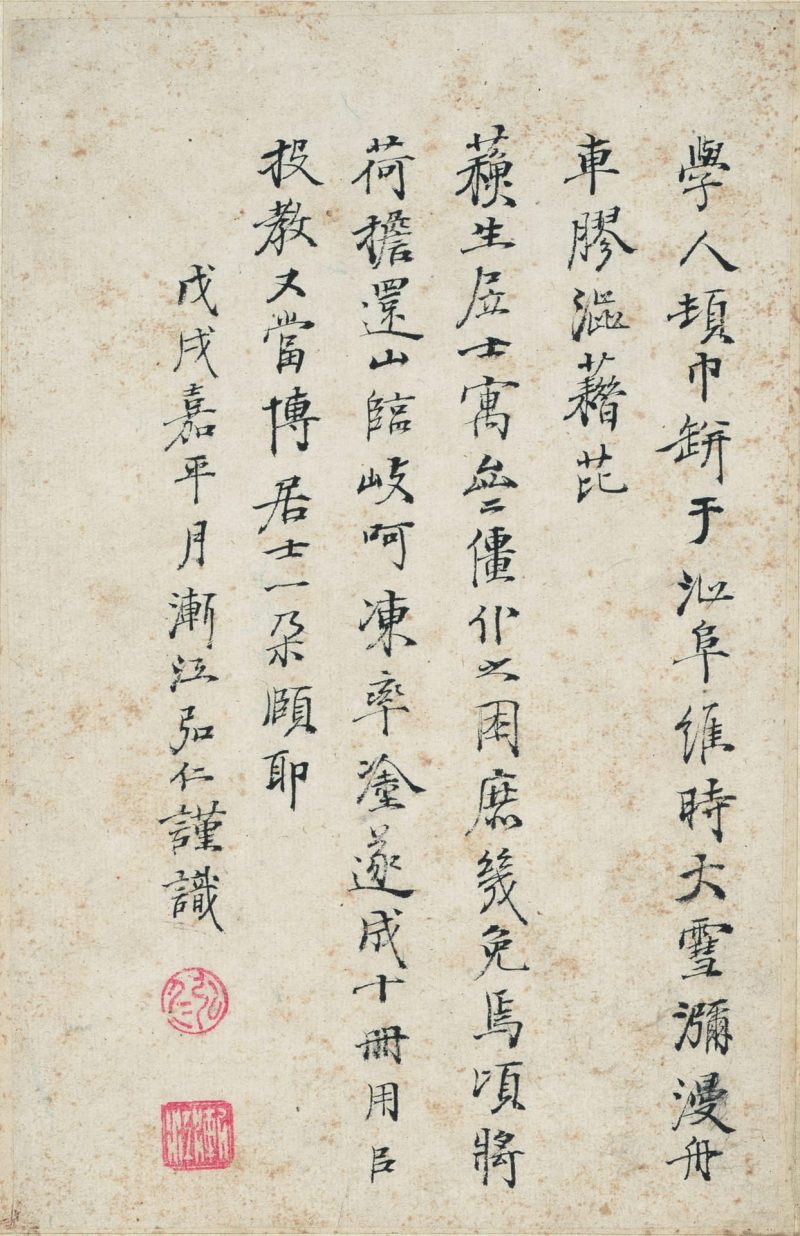 學人頓巾缾于沁阜維時大雪瀰漫舟
車膠澁藉芘
蘋生居士寓無僵仆之困庶幾免焉頃將
荷擔還山臨岐呵凍率塗遂成十冊用㠯
投教又當博居士一朶頤耶
戊戌嘉平月漸江弘仁謹識
弘仁
漸江